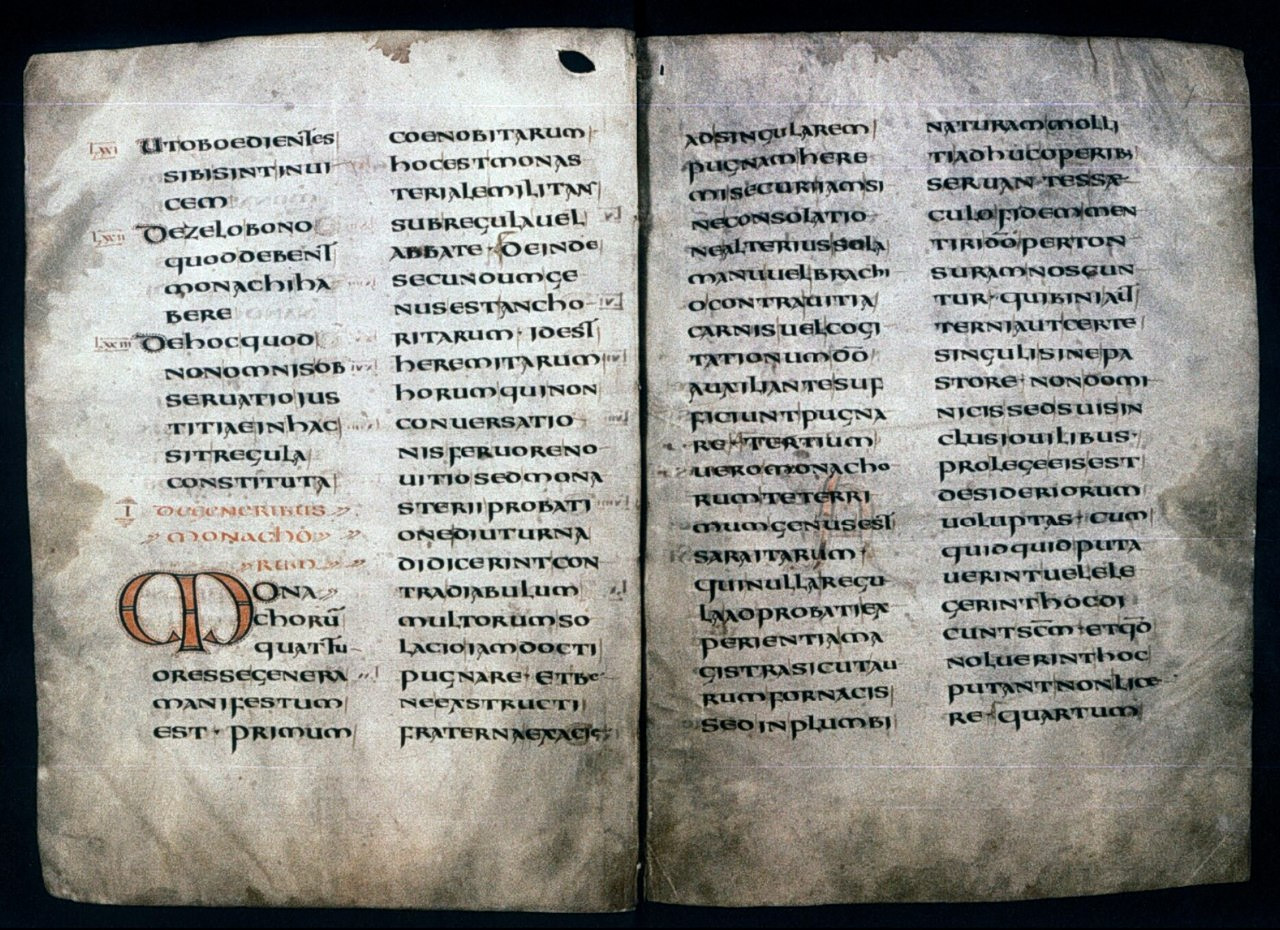 LXXI UTOBOEDIENTES
SIBISINTINUI
CEM
LXXII DEZELOBONO
QUODDEBENT
MONACHIHA
BERE
LXXIII DEHOCQUOD
NONOMNISOB
SERUATIOIUS
TITIAEINHAC
SITREGULA
CONSTITUTA
I DEGENERIBUS
MONACHO
RUM
MONA
CHORŪ
QUATTU
ORESSEGENERA
MANIFESTUM
EST · PRIMUM
COENOBITARUM
HOCESTMONAS
TERIALEMILITANS
SUBREGULAUEL
ABBATE · DEINDE
SECUNDUMGE
NUSESTANCHO
RITARUM · IDEST
HEREMITARUM
HORUMQUINON
CONUERSATIO
NISFERUORENO
UITIOSEDMONA
STERIIPROBATI
ONEDIUTURNA
DIDICERINTCON
TRADIABULUM
MULTORUMSO
LACIOIAMDOCTI
PUGNARE · ETBE
NEEXSTRUCTI
FRATERNAEXACIE
ADSINGULAREM
PUGNAMHERE
MISECURIIAMSI
NECONSOLATIO
NEALTERIUSSOLA
MANUUELBRACHI
OCONTRAUITIA
CARNISUELCOGI
TATIONUMDŌ
AUXILIANTESUF
FICIUNTPUGNA
RE · TERTIUM
UEROMONACHO
RUMTETERRI
MUMGENUSEST
SARAITARUM ·
QUINULLAREGU
LAADPROBATIEX
PERIENTIAMA
GISTRASICUTAU
RUMFORNACIS
SEDINPLUMBI
NATURAMMOLLI
TIADHUCOPERIBUS
SERUANTESSAE
CULOFIDEMMEN
TIRIDŌPERTON
SURAMNOSCUN
TUR · QUIBINIAUT
TERNIAUTCERTE
SINGULISINEPA
STORE · NONDOMI
NICISSEDSUISIN
CLUSIOUILIBUS ·
PROLEGEEISEST
DESIDERIORUM
UOLUPTAS · CUM
QUIDQUIDPUTA
UERINTUELELE
GERINTHOCDI
CUNTSCM̄ · ETQD̄
NOLUERINTHOC
PUTANTNONLICE
RE · QUARTUM